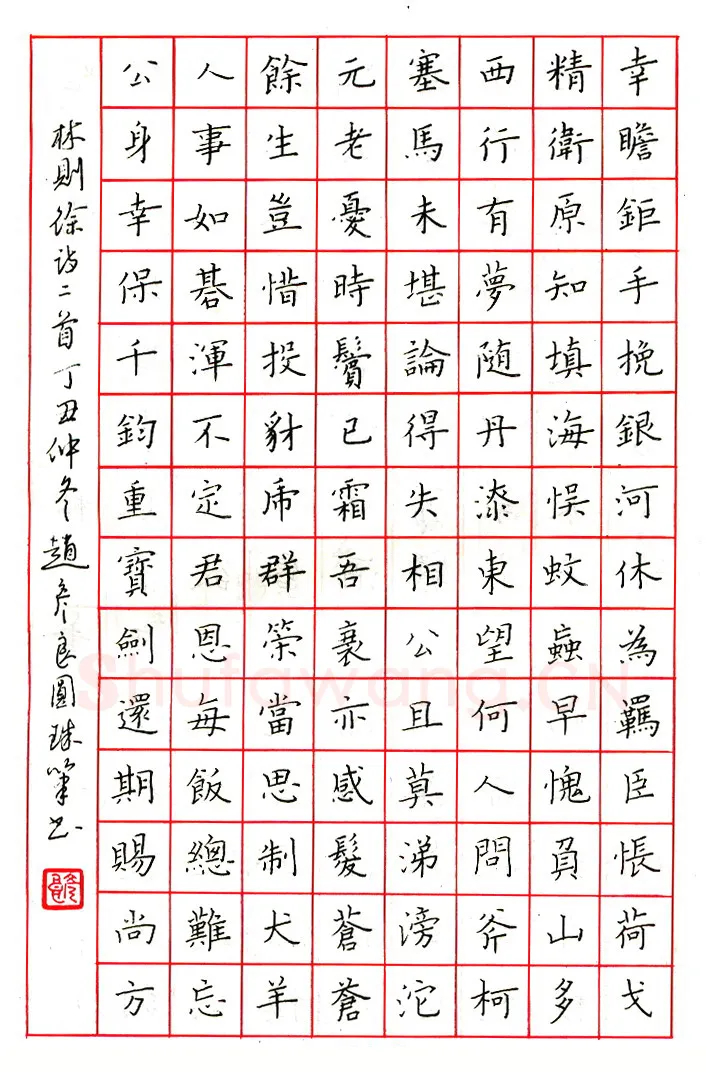 幸瞻鉅手挽銀河休為羈臣悵荷戈
精衛原知填海悞蚊蝱早愧負山多
西行有夢随丹漆東望何人問斧柯
塞馬未堪論得失相公且莫涕滂沱
元老憂時鬢已霜吾衰亦感髮蒼蒼
餘生豈惜投豺虎群策當思制犬羊
人事如碁渾不定君恩每飯總難忘
公身幸保千鈞重寶劍還期賜尚方
林則徐詩二首丁丑仲冬趙彥良圓珠筆书
Shufawang.CN